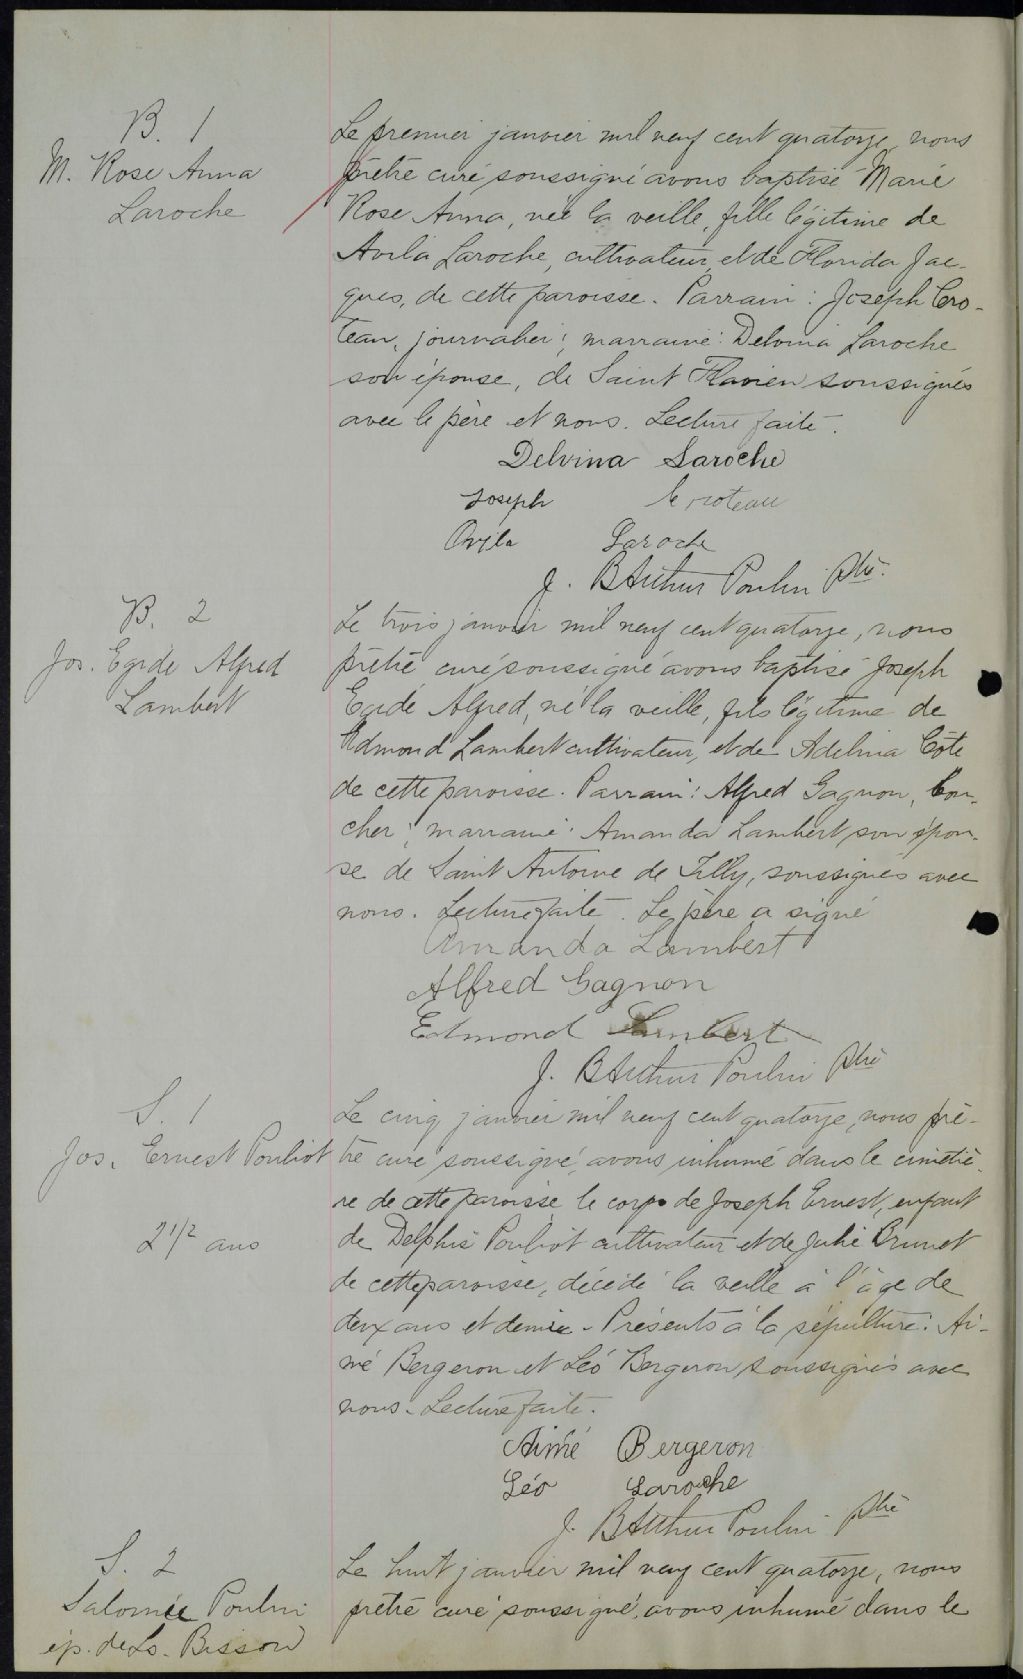 B. 1
M. Rose Anna
Laroche
Le premier janvier mil neuf cent quatorze, nous
prêtre curé soussigné avons baptisé Marie
Rose Anna, née la veille, fille légitime de
Avila Laroche, cultivateur, et de Florida Jac-
ques, de cette paroisse. Parrain : Joseph Cro-
teau, journalier ; marraine : Delvina Laroche
son épouse, de Saint Flavien soussignés
avec le père et nous. Lecture faite.
Delvina Laroche
Joseph Croteau
Avila Laroche
J. B Arthur Poulin Ptre.
B. 2
Jos. Egide Alfred
Lambert
Le trois janvier mil neuf cent quatorze, nous
prêtre curé soussigné avons baptisé Joseph
Egide Alfred, né la veille, fils légitime de
Edmond Lambert cultivateur, et de Adelina Côté
de cette paroisse. Parrain : Alfred Gagnon, bou-
cher ; marraine : Amanda Lambert son épou-
se de Saint Antoine de Tilly, soussignés avec
nous. Lecture faite. Le père a signé
Amanda Lambert
Alfred Gagnon
Edmond Lambert
J. B Arthur Poulin Ptre
S. 1
Jos. Ernest Pouliot
2 1/2 ans
Le cinq janvier mil neuf cent quatorze, nous prê-
tre curé soussigné, avons inhumé dans le cimetiè-
re de cette paroisse, le corps de Joseph Ernest, enfant
de Delphis Pouliot cultivateur et de Julie Brunet
de cette paroisse, décédé la veille à l'âge de
deux ans et demie - Présents à la sépulture : Ai-
mé Bergeron et Léo Bergeron soussignés avec
nous - Lecture faite.
Aimé Bergeron
Léo Laroche
J. B Arthur Poulin Ptre
S. 2
Salomée Poulin
ép. de Ls. Bisson
Le huit janvier mil neuf cent quatorze, nous
prêtre curé soussigné, avons inhumé dans le